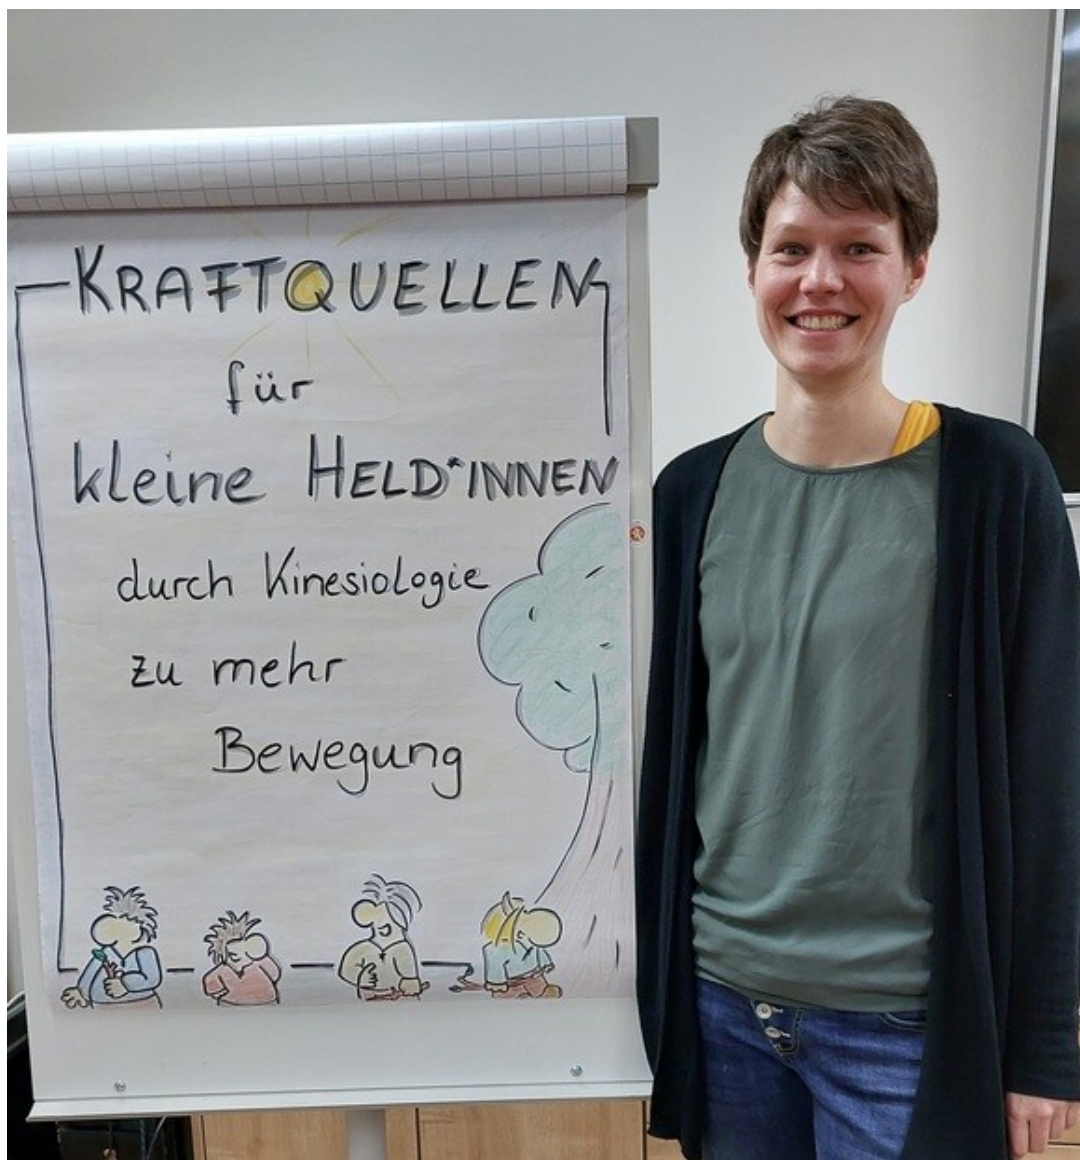 KRAFTQUELLEN
für
kleine HELD*INNEN
durch Kinesiologie
zu mehr
Bewegung